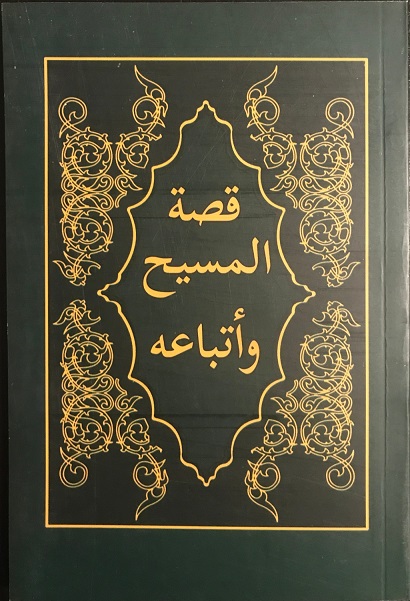 قصة
المسيح
وأتباعه